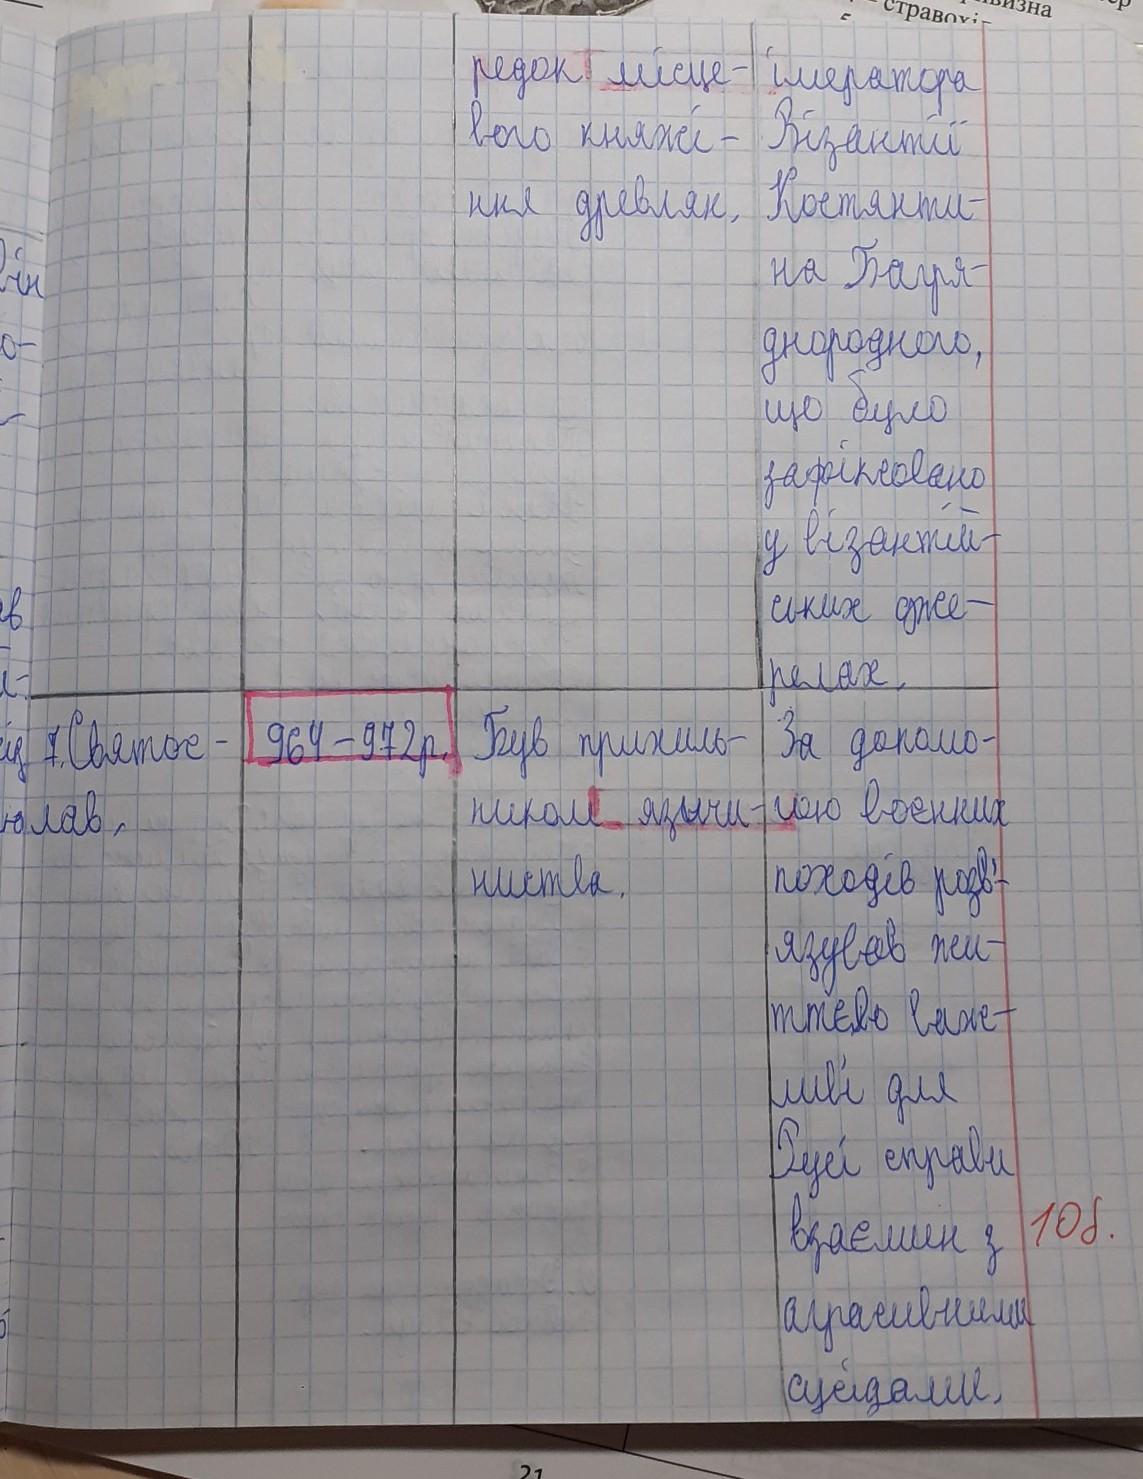 ривизна
стравохі-
редок місце-
вого княжі-
ння древлян.
імператора
Візантії
Костянти-
на Багря-
днородного,
що було
зафіксовано
у візантій-
ських дже-
релах.
7. Святос-
лав.
964-972р.
Був прихиль-
ником язычи-
ництва.
За допомо-
гою воєнних
походів розв'-
язував жи-
ттєво важ-
ливі для
Русі справи
взаємин з
аграсивними
сусідами.
10б.
він
о-
ів
21